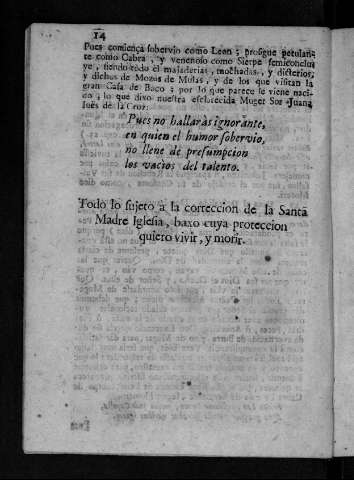 14
Pues comiença sobervio como Leon; prosigue petulan-
te como Cabra, y venenoso como Sierpe semiconclu-
ye, siendo todo el majaderias, mochadas, y dicterios,
y dichos de Mozos de Mulas, y de los que visitan la
gran Casa de Baco; por lo que parece le viene naci-
do, lo que dixo nuestra esclarecida Muger Sor Juana
Inès de la Cruz:
Pues no hallaràs ignorante,
en quien el humor sobervio,
no llene de presumpcion
los vacios del talento.
Todo lo sujeto à la correccion de la Santa
Madre Iglesia, baxo cuya proteccion
quiero vivir, y morir.